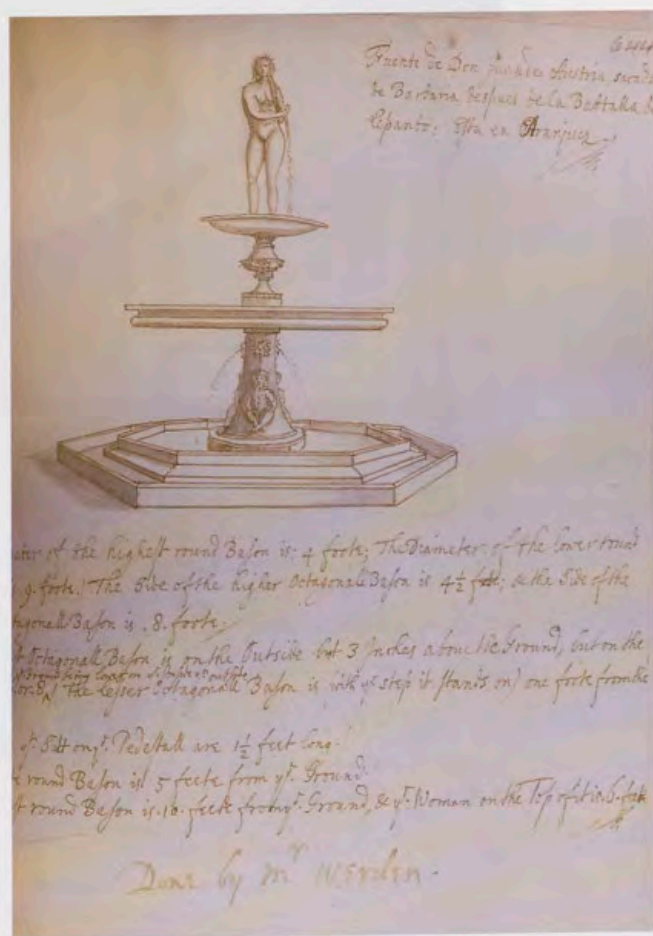 Fuente de Don Juan de Austria sacada
de Barbaria despues de la Battalla de
Lepanto; esta en Aranjuez
eter of the highest round Bason is 4 foote; The Diameter of the lower round
9. foote. The Side of the higher Octagonall Bason is 4½ foote; & the Side of the
tagonall Bason is .8. foote.
t Octagonall Bason is on the Outside but 3 Inches above the Ground, but on the
The lesser Octagonall Bason is (with yᵉ step it stands on) one foote from the
yᵗ Sitt on yᵉ Pedestall are 1½ feet long.
round Bason is 5 feete from yᵉ Ground.
t round Bason is .10. feete from yᵉ Ground, & yᵉ Woman on the Top of it is .6. feete
Done by Mʳ Werden.